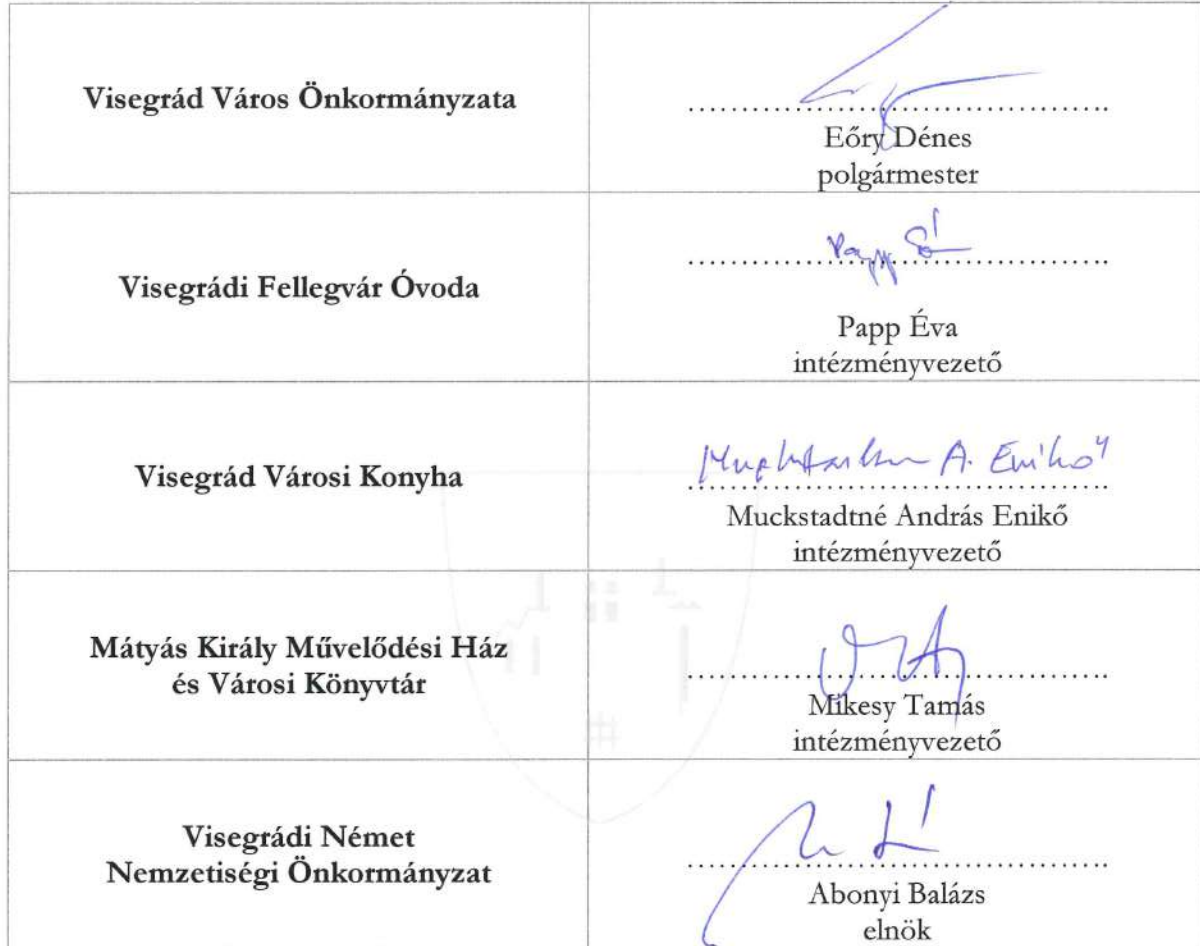 Visegrád Város Önkormányzata
Eőry Dénes
polgármester
Visegrádi Fellegvár Óvoda
Papp Éva
intézményvezető
Visegrád Városi Konyha
A. Enikő
Muckstadtné András Enikő
intézményvezető
Mátyás Király Művelődési Ház
és Városi Könyvtár
Mikesy Tamás
intézményvezető
Visegrádi Német
Nemzetiségi Önkormányzat
Abonyi Balázs
elnök